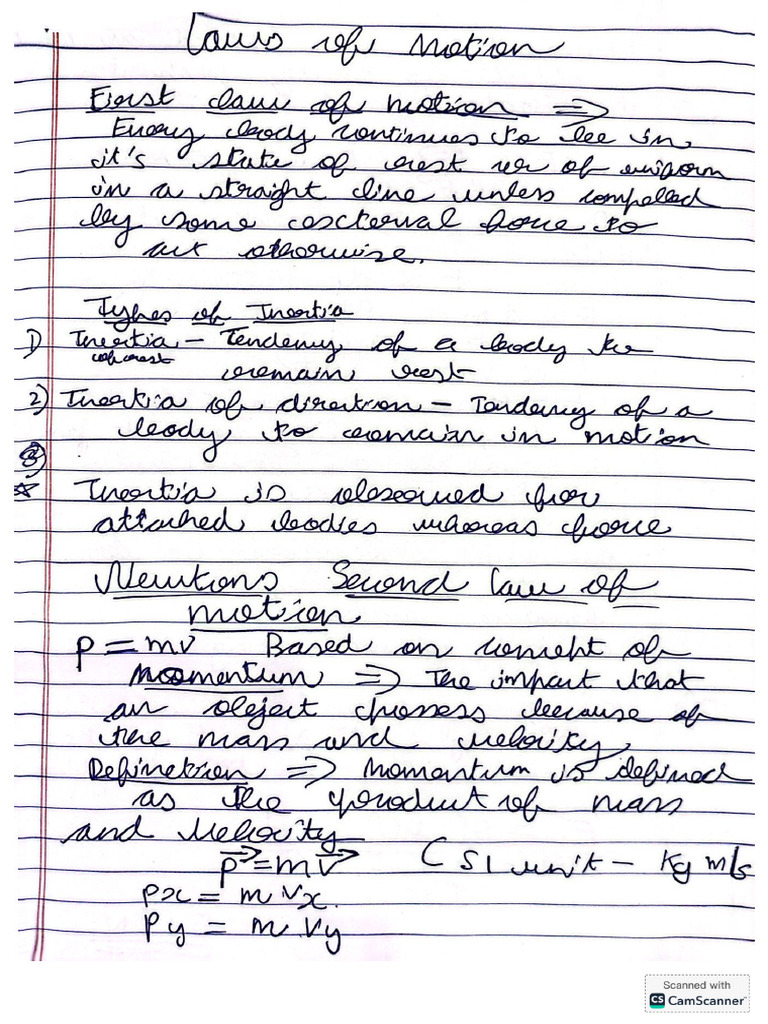 Laws of Motion
First law of motion ⇒
Every body continues to be in
it's state of rest or of uniform
in a straight line unless compelled
by some external force to
act otherwise.
Types of Inertia
1) Inertia of rest – Tendency of a body to
remain rest
2) Inertia of direction – Tendency of a
body to remain in motion
3)
☆ Inertia is observed for
attached bodies whereas force
Newtons Second law of
motion
P = mv Based on concept of
Momentum ⇒ The impact that
an object possess because of
the mass and velocity
Defination ⇒ Momentum is defined
as the product of mass
and velocity
P⃗ = mv⃗ ( SI unit – Kg m/s
Px = m Vx.
Py = m Vy
Scanned with
CS CamScanner